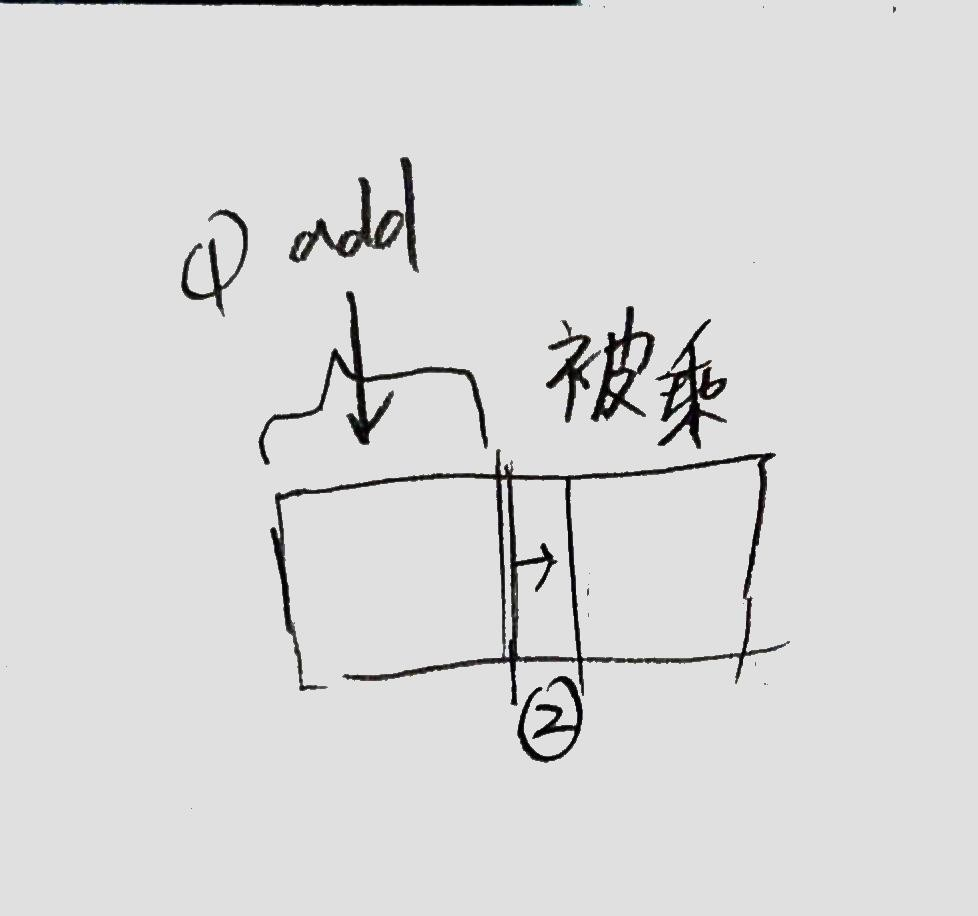 ① add
被乘
②